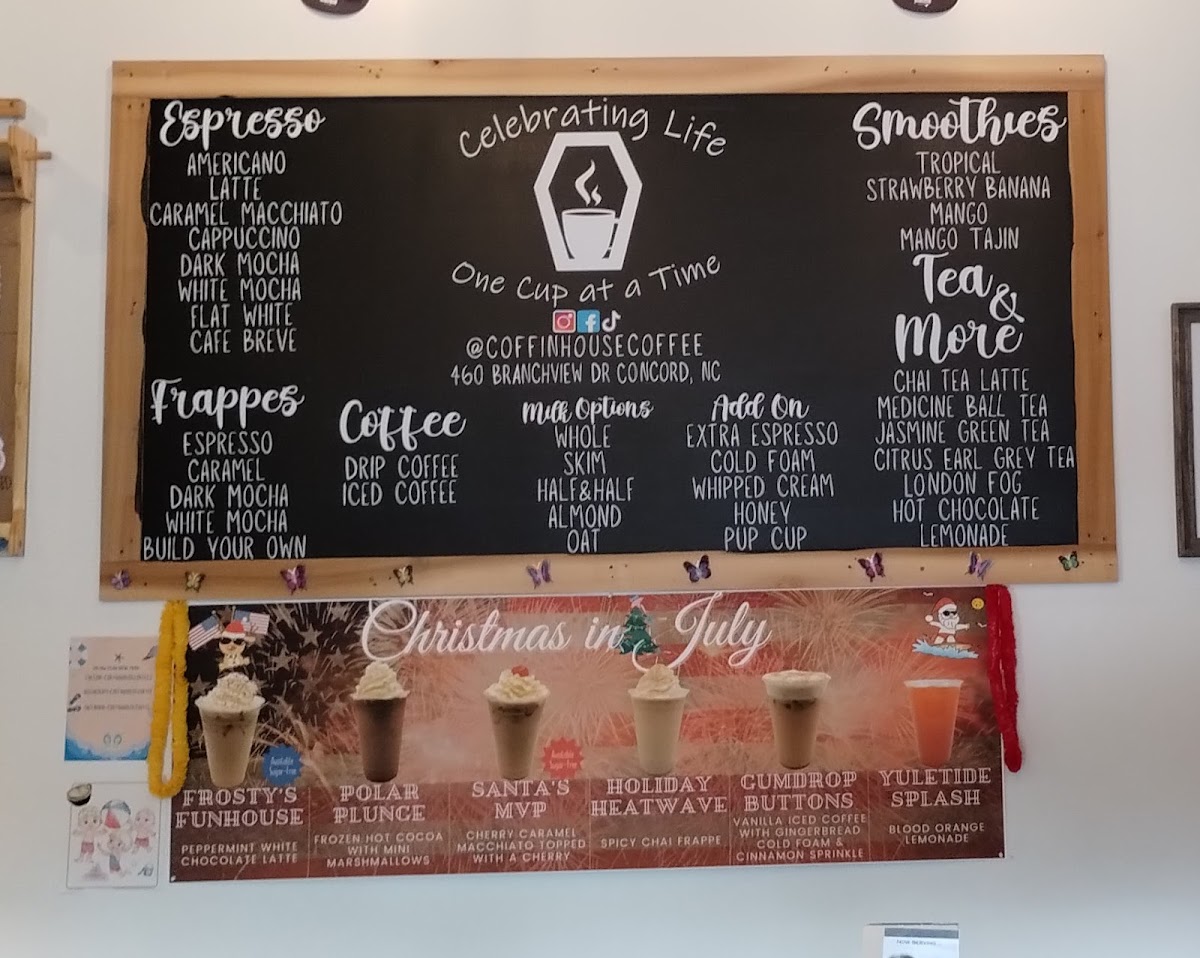 Espresso
AMERICANO
LATTE
CARAMEL MACCHIATO
CAPPUCCINO
DARK MOCHA
WHITE MOCHA
FLAT WHITE
CAFE BREVE
Frappes
ESPRESSO
CARAMEL
DARK MOCHA
WHITE MOCHA
BUILD YOUR OWN
Celebrating Life
One Cup at a Time
@COFFINHOUSECOFFEE
460 BRANCHVIEW DR CONCORD, NC
Coffee
DRIP COFFEE
ICED COFFEE
Milk Options
WHOLE
SKIM
HALF&HALF
ALMOND
OAT
Add On
EXTRA ESPRESSO
COLD FOAM
WHIPPED CREAM
HONEY
PUP CUP
Smoothies
TROPICAL
STRAWBERRY BANANA
MANGO
MANGO TAJIN
Tea &
More
CHAI TEA LATTE
MEDICINE BALL TEA
JASMINE GREEN TEA
CITRUS EARL GREY TEA
LONDON FOG
HOT CHOCOLATE
LEMONADE
Christmas in July
Available
Sugar-Free
FROSTY'S
FUNHOUSE
PEPPERMINT WHITE
CHOCOLATE LATTE
POLAR
PLUNGE
FROZEN HOT COCOA
WITH MINI
MARSHMALLOWS
Available
Sugar-Free
SANTA'S
MVP
CHERRY CARAMEL
MACCHIATO TOPPED
WITH A CHERRY
HOLIDAY
HEATWAVE
SPICY CHAI FRAPPE
GUMDROP
BUTTONS
VANILLA ICED COFFEE
WITH GINGERBREAD
COLD FOAM &
CINNAMON SPRINKLE
YULETIDE
SPLASH
BLOOD ORANGE
LEMONADE
NOW SERVING...